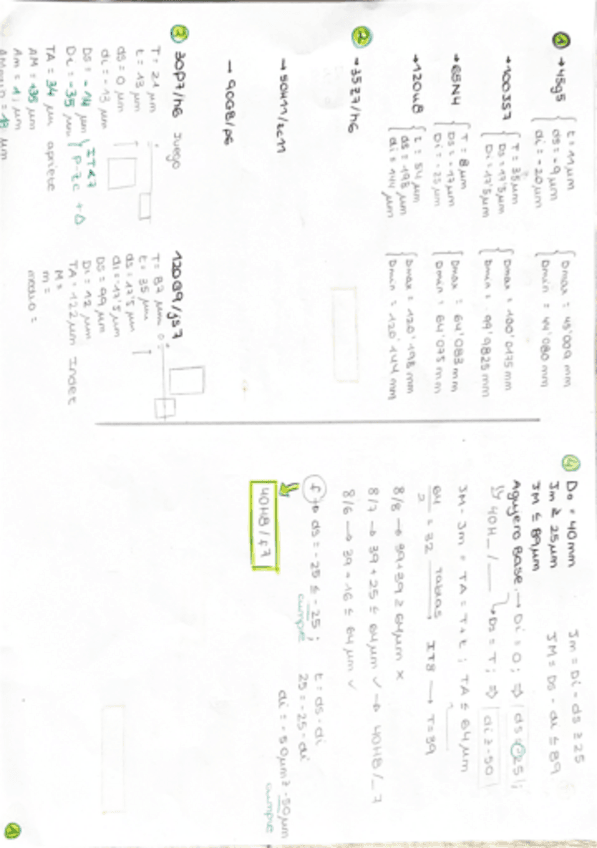 ① → 45g5
t = 11 µm
ds = -9 µm
di = -20 µm
Dmax = 45'009 mm
Dmin = 44'080 mm
→ 100JS7
T = 35 µm
Ds = 17'5 µm
Di = 17'5 µm
Dmax = 100'0175 mm
Dmin = 99'9825 mm
→ 65N4
T = 8 µm
Ds = -17 µm
Di = -25 µm
Dmax = 64'083 mm
Dmin = 64'075 mm
→ 120u8
t = 54 µm
ds = 198 µm
di = 144 µm
Dmax = 120'198 mm
Dmin = 120'144 mm
② → 35Z7/h6
→ 50H11/zc11
→ 90G8/p6
③ 30P7/h6 Juego
T = 21 µm
t = 13 µm
ds = 0 µm
di = -13 µm
Ds = -14 µm
Di = -35 µm
IT<7
P-ZC + Δ
TA = 34 µm apriete
AM = +35 µm
Am = 1 µm
120G9/js7
T = 87 µm
t = 35 µm
ds = 17'5 µm
di = 17'5 µm
Ds = 99 µm
Di = 12 µm
TA = 122 µm Indet
M =
m =
medio =
④ Do = 40 mm
Jm ≥ 25 µm
JM ≤ 89 µm
Jm = Di - ds ≥ 25
JM = Ds - di ≤ 89
Agujero Base → Di = 0; ⇒ ds ≤ -25;
40H_/_ Ds = T; ⇒ di ≥ -50
JM - Jm = TA = T + t; TA ≤ 64 µm
64/2 = 32 Tablas → IT8 → T = 39
8/8 → 39+39 ≥ 64 µm ×
8/7 → 39 + 25 ≤ 64 µm ✓ → 40H8/_7
8/6 → 39 + 16 ≤ 64 µm ✓
f → ds = -25 ≤ -25; t = ds - di
cumple 25 = -25 - di
di = -50 µm ≥ -50 µm
cumple
40H8/f7